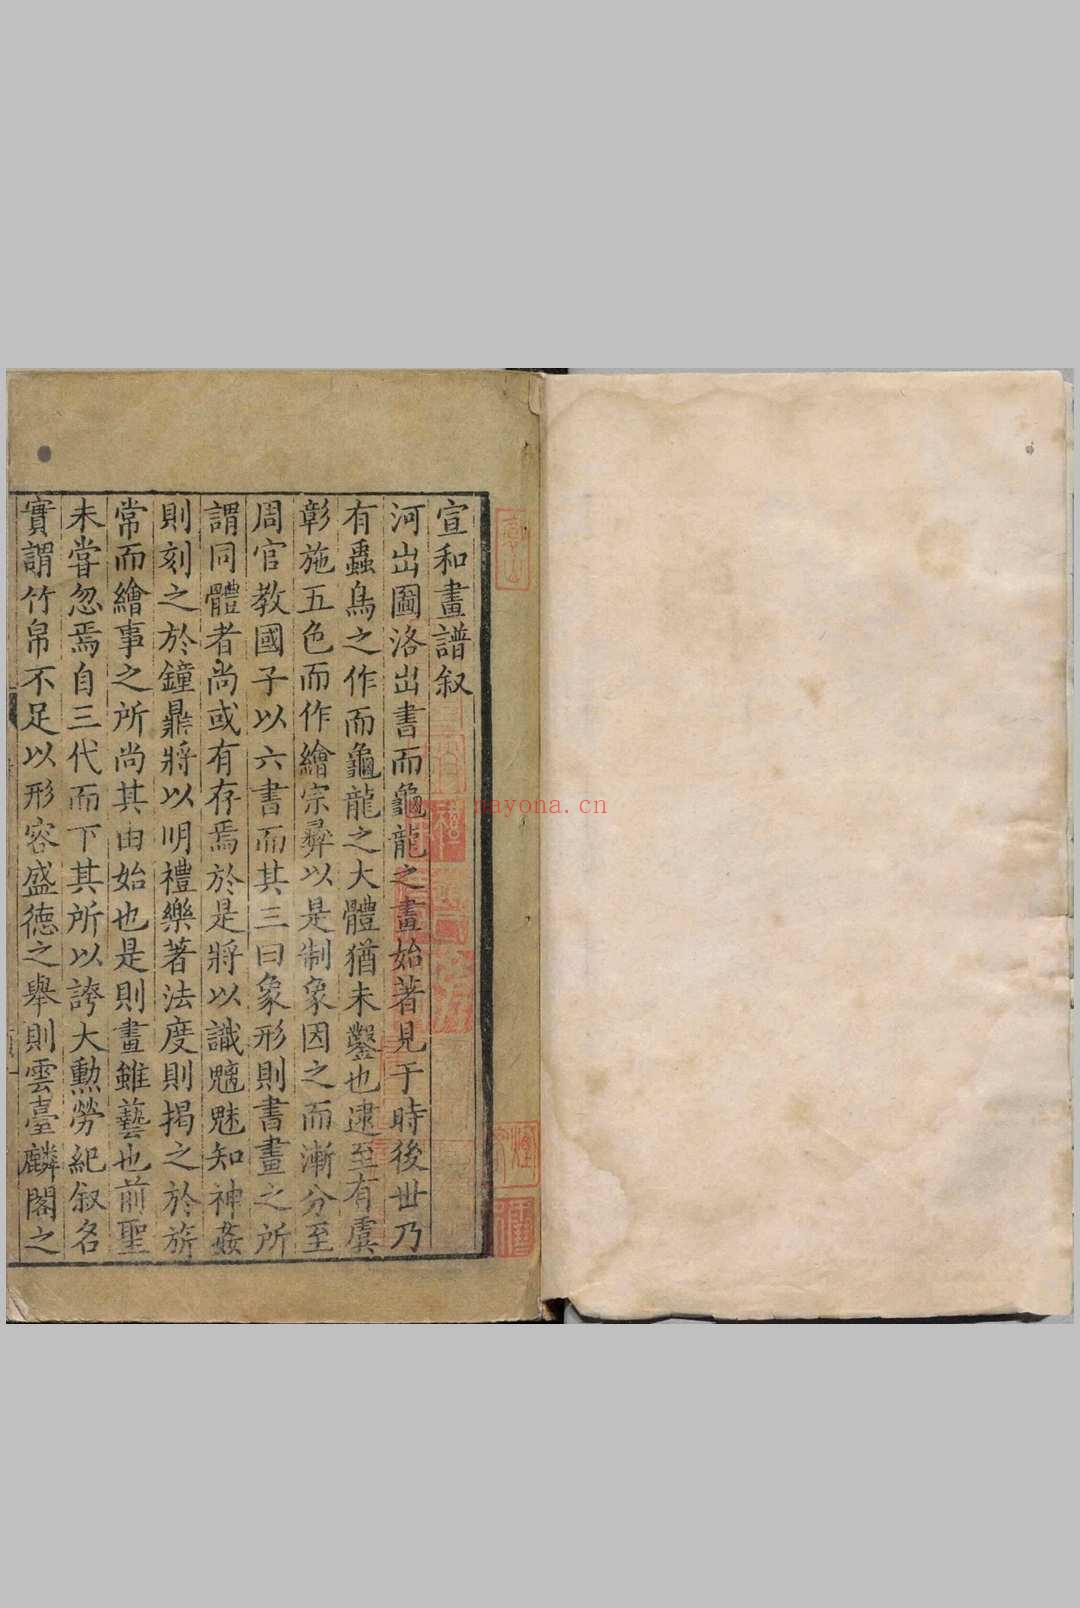 宣和畫譜叙
河出圖洛出書而龜龍之畫始著見于時後世乃
有蟲鳥之作而龜龍之大體猶未鑿也逮至有虞
彰施五色而作繪宗彝以是制象因之而漸分至
周官教國子以六書而其三曰象形則書畫之所
謂同體者尚或有存焉於是將以識魑魅知神姦
則刻之於鐘鼎將以明禮樂著法度則揭之於旂
常而繪事之所尚其由始也是則畫雖藝也前聖
未嘗忽焉自三代而下其所以誇大勳勞紀叙名
實謂竹帛不足以形容盛德之舉則雲臺麟閣之
nayona.cn